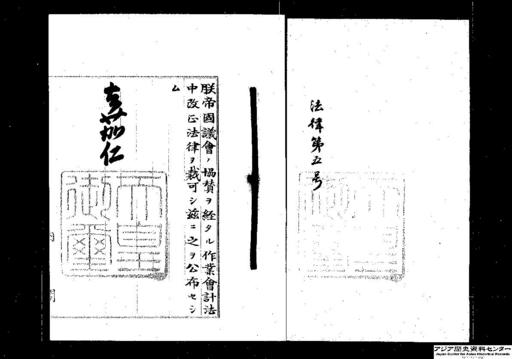 法律第五号
朕帝國議會ノ協賛ヲ經タル作業會計法
中改正法律ヲ裁可シ茲ニ之ヲ公布セシ
ム
嘉仁
天皇
御璽
内
閣
アジア歴史資料センター
Japan Center for Asian Historical Records